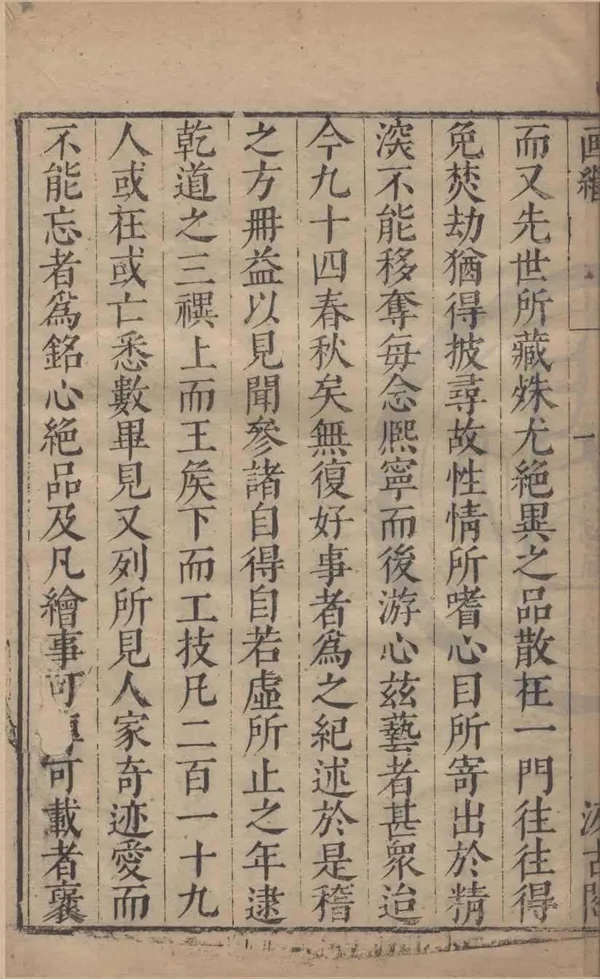 画繼
一
汲古閣
而又先世所藏殊尤絶異之品散在一門徃徃得
免焚劫猶得披尋故性情所嗜心目所寄出於精
深不能移奪每念熈寧而後游心兹藝者甚衆迨
今九十四春秋矣無復好事者爲之紀述於是稽
之方冊益以見聞參諸自得自若虛所止之年逮
乾道之三禩上而王矦下而工技凡二百一十九
人或在或亡悉數畢見又列所見人家奇迹愛而
不能忘者爲銘心絶品及凡繪事可可載者裒